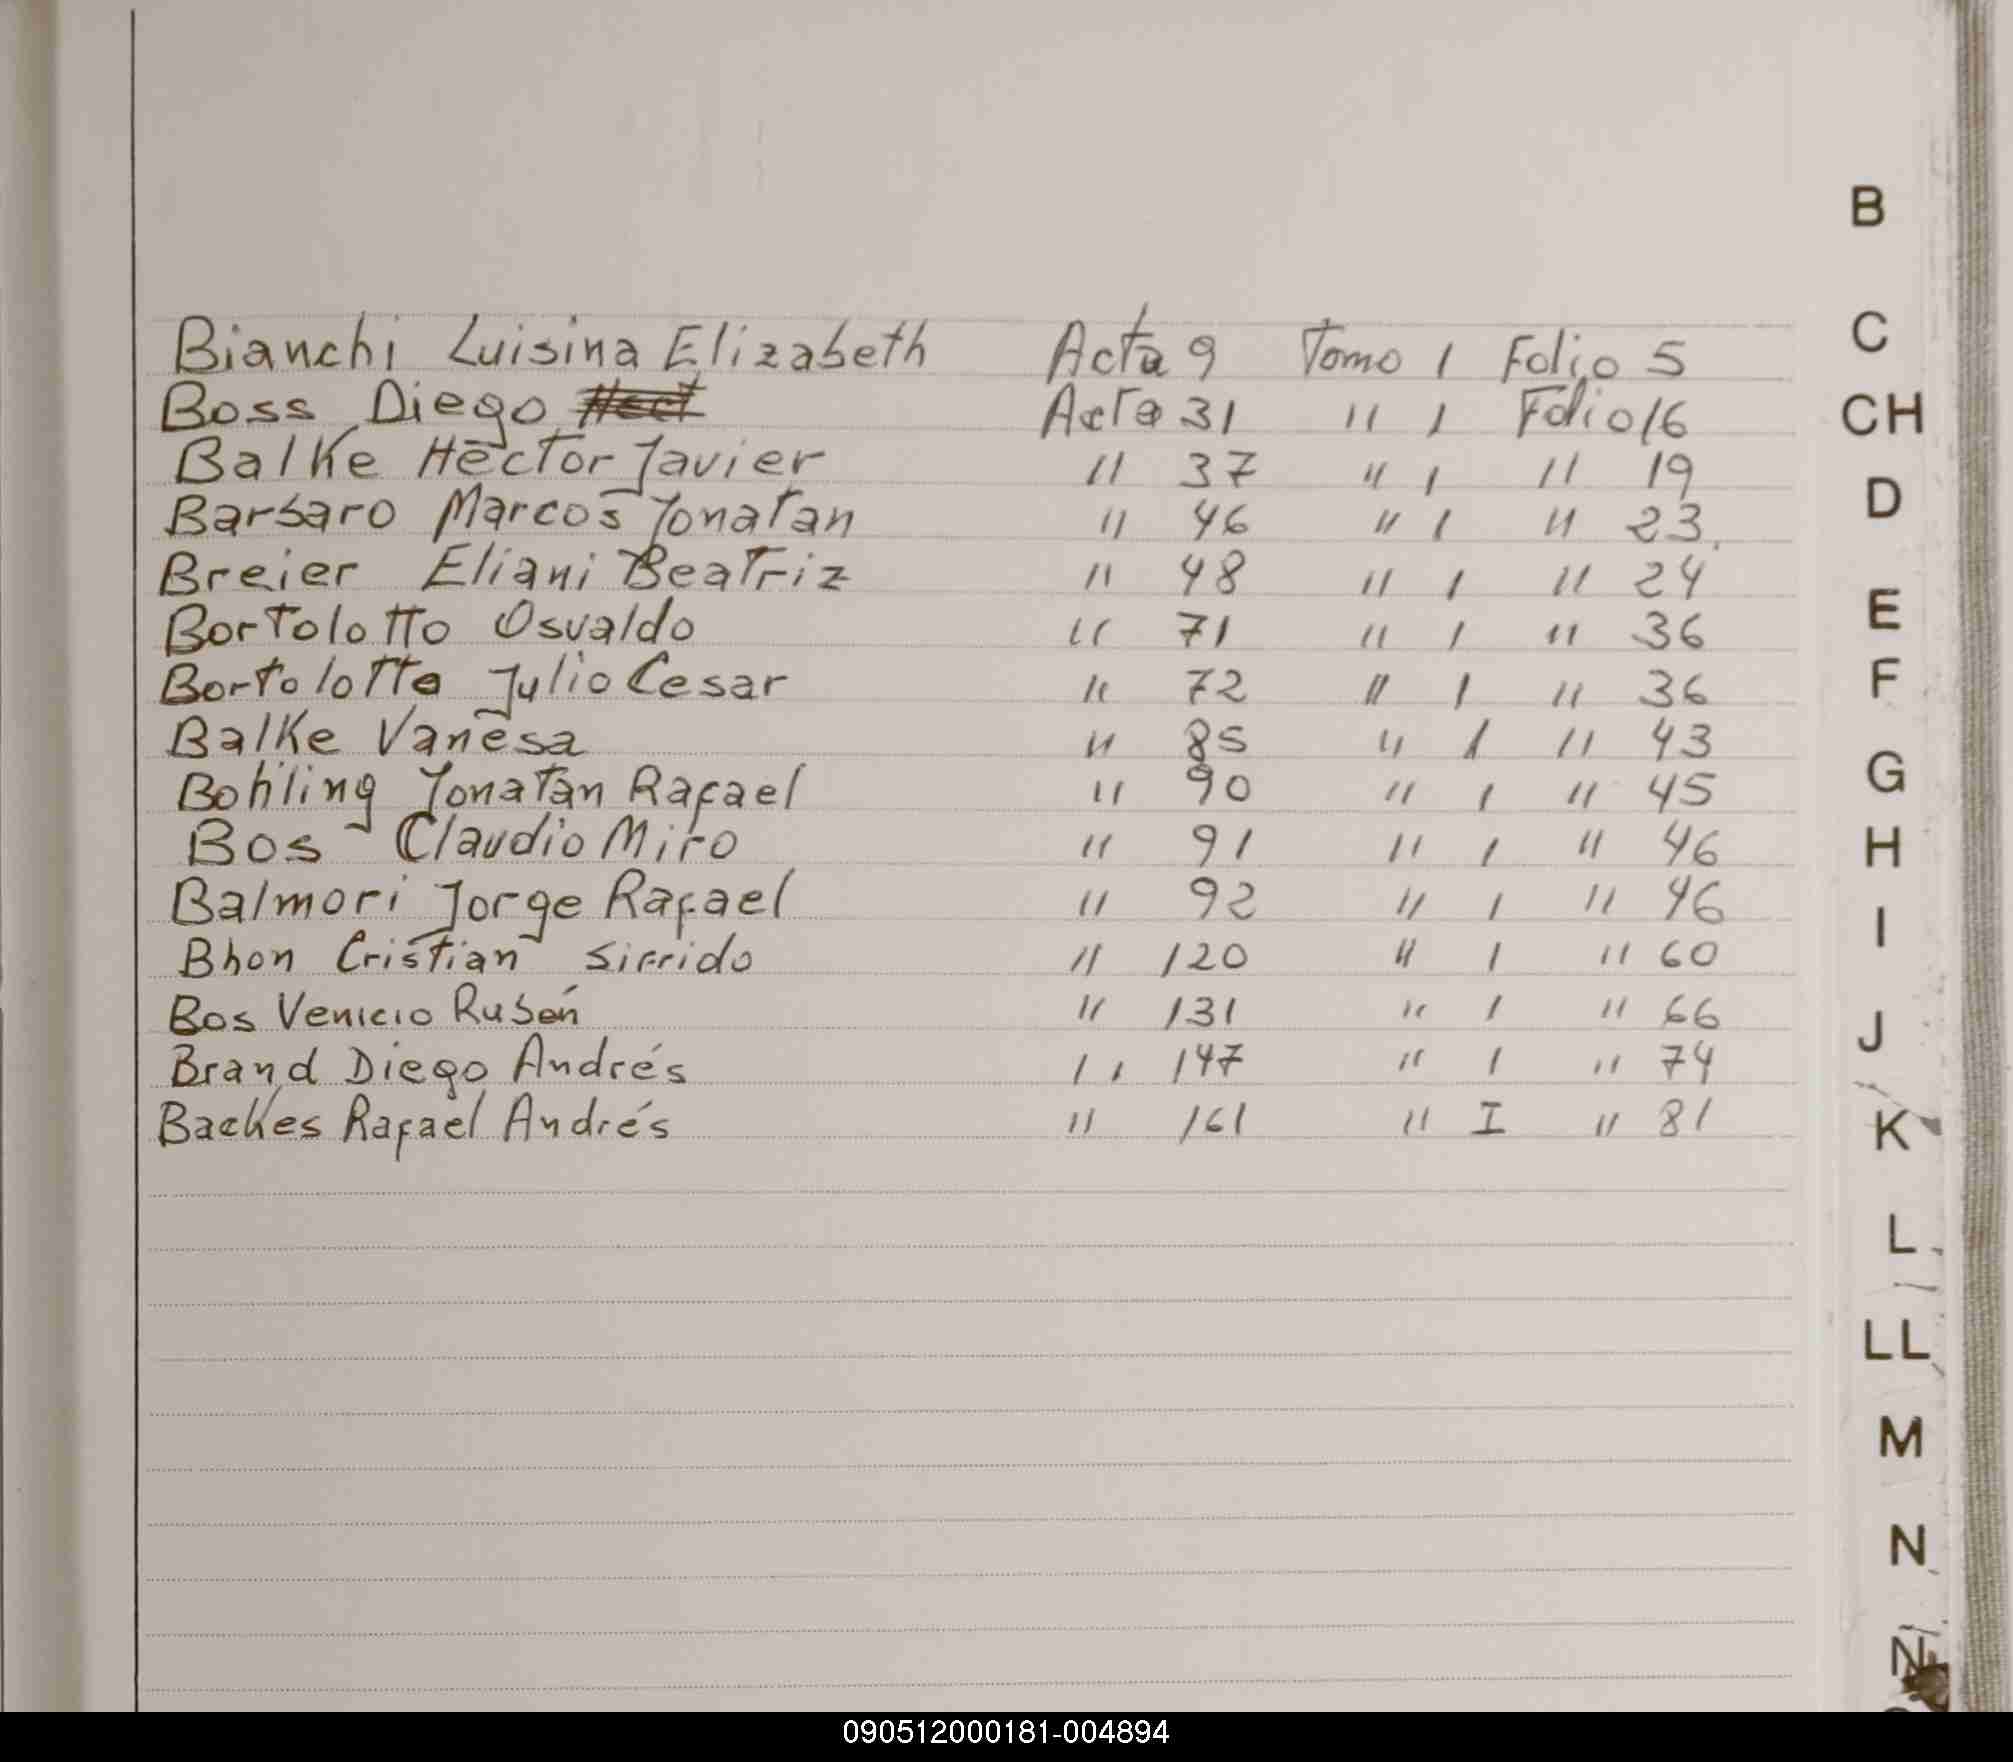 Bianchi Luisina Elizabeth Acta 9 Tomo 1 Folio 5
Boss Diego Acta 31 " 1 Folio 16
Balke Héctor Javier " 37 " 1 " 19
Barbaro Marcos Jonatan " 46 " 1 " 23
Breier Eliani Beatriz " 48 " 1 " 24
Bortolotto Osvaldo " 71 " 1 " 36
Bortolotto Julio Cesar " 72 " 1 " 36
Balke Vanesa " 85 " 1 " 43
Bohling Jonatan Rafael " 90 " 1 " 45
Bos Claudio Miro " 91 " 1 " 46
Balmori Jorge Rafael " 92 " 1 " 46
Bhon Cristian Sifrido " 120 " 1 " 60
Bos Venicio Rubén " 131 " 1 " 66
Brand Diego Andrés " 147 " 1 " 74
Backes Rafael Andrés " 161 " I " 81
B
C
CH
D
E
F
G
H
I
J
K
L
LL
M
N
090512000181-004894